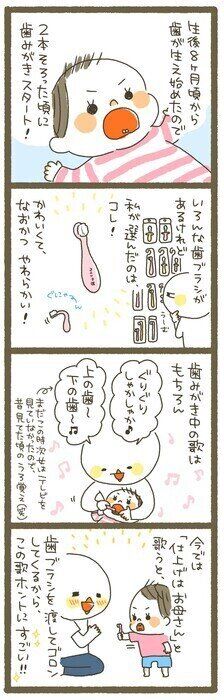 生後8ヶ月頃から
歯が生え始めたので
2本そろった頃に
歯みがきスタート!
いろんな歯ブラシが
あるけれど
私が選んだのは、
コレ!
うーむ
かわいくて、
なおかつ やわらかい!
ぐにゃん
歯みがき中の歌は
もちろん
ぐりぐり
しゃかしゃか♪
上の歯〜
下の歯〜♪
まだこの時次女はテレビを
見ていなかったので、
昔見てた頃のうろ覚え(笑)
今では
「仕上げはお母さん」と
歌うと、
歯ブラシを渡してゴロン
してくるから、
この歌ホントにすごい!!